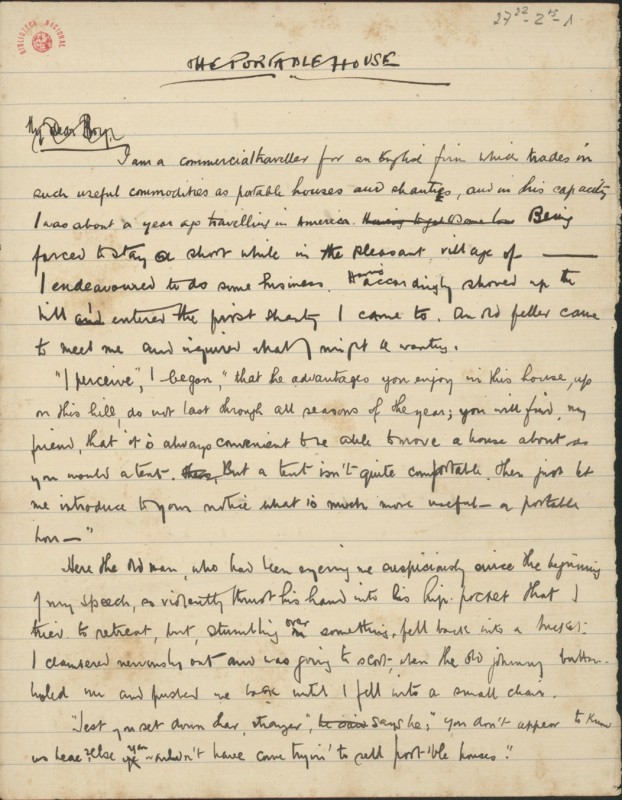 BIBLIOTECA NACIONAL
27 22 - 2 r5 - 1
THE PORTABLE HOUSE
My dear Boy,
I am a commercial traveller for an English firm which trades in
such useful commodities as portable houses and shanties, and in this capacity
I was about a year ago travelling in America. Having to get Being
forced to stay a short while in the pleasant village of ———
I endeavoured to do some business. Having accordingly shoved up the
hill and I entered the first shanty I came to. An old feller came
to meet me and inquired what I might be wanting.
"I perceive", I began, "that the advantages you enjoy in this house, up
on this hill, do not last through all seasons of the year; you will find, my
friend, that it is always convenient to be able to move a house about as
you would a tent. But a tent isn't quite comfortable. Then just let
me introduce to your notice what is much more useful — a portable
hou —"
Here the old man, who had been eyeing me suspiciously since the beginning
of my speech, so violently thrust his hand into his hip-pocket that I
tried to retreat, but, stumbling over on something, fell back into a bucket.
I clambered nervously out and was going to scoot, when the old johnny button-
holed me and pushed me back until I fell into a small chair.
"Jest you set down thar, stranger", he said says he; "you don't appear to know
us hear, else you wouldn't have come tryin' to sell port'ble houses."